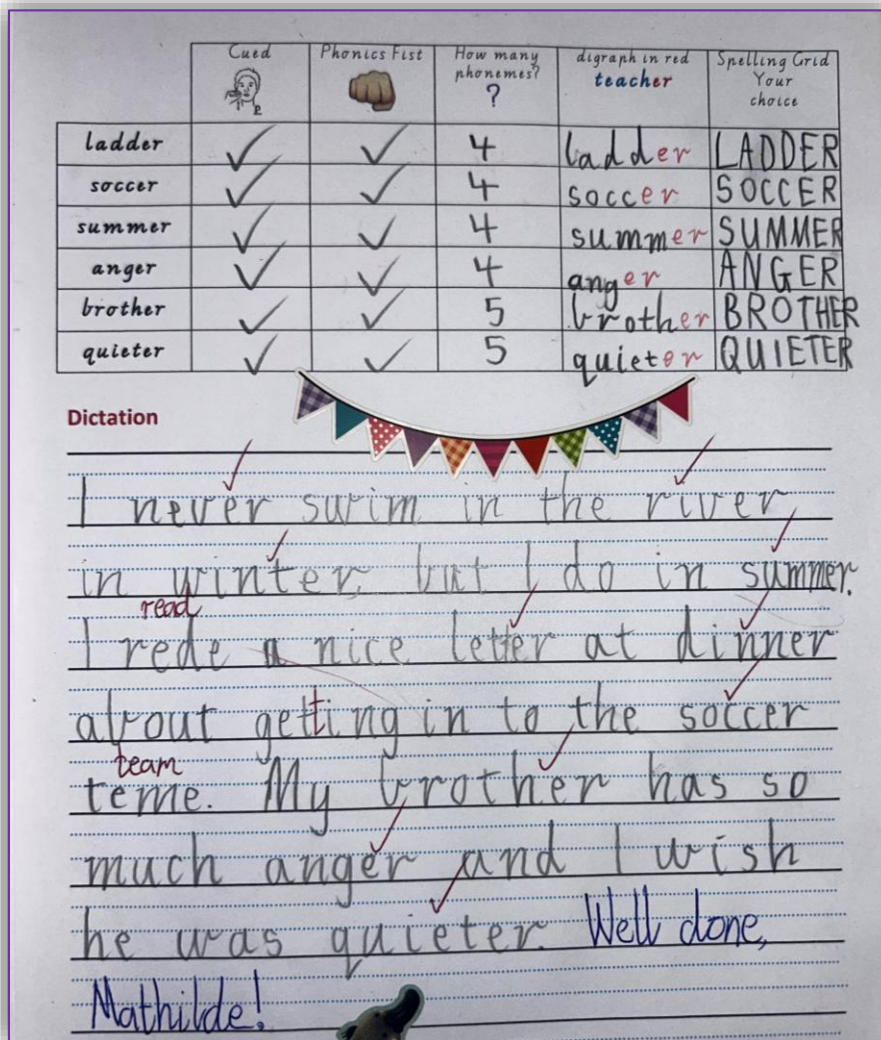 Cued Phonics Fist How many phonemes? ? digraph in red teacher Spelling Grid Your choice
ladder ✓ ✓ 4 ladder LADDER
soccer ✓ ✓ 4 soccer SOCCER
summer ✓ ✓ 4 summer SUMMER
anger ✓ ✓ 4 anger ANGER
brother ✓ ✓ 5 brother BROTHER
quieter ✓ ✓ 5 quieter QUIETER
Dictation
I never swim in the river
in winter, but I do in summer.
read
I rede a nice letter at dinner
about getting in to the soccer
team
teme. My brother has so
much anger and I wish
he was quieter. Well done,
Mathilde!